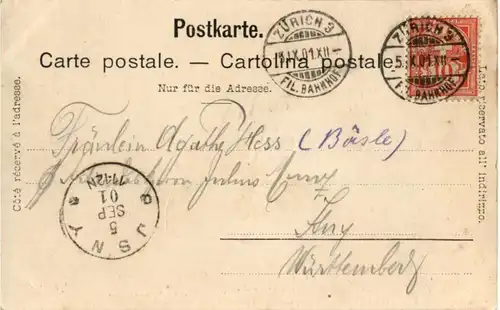 Postkarte.
Carte postale. — Cartolina postale.
Nur für die Adresse.
Côté réservé à l'adresse.
Lato riservato all' indirizzo.
ZÜRICH 3
5.IX.01.XII
FIL. BAHNHOF
ZÜRICH 3
5.IX.01.XII
FIL. BAHNHOF
Fräulein Agathe Hess (Bäsle)
Julius
Isny
Württemberg
JSNY
5
SEP
01
7-12N